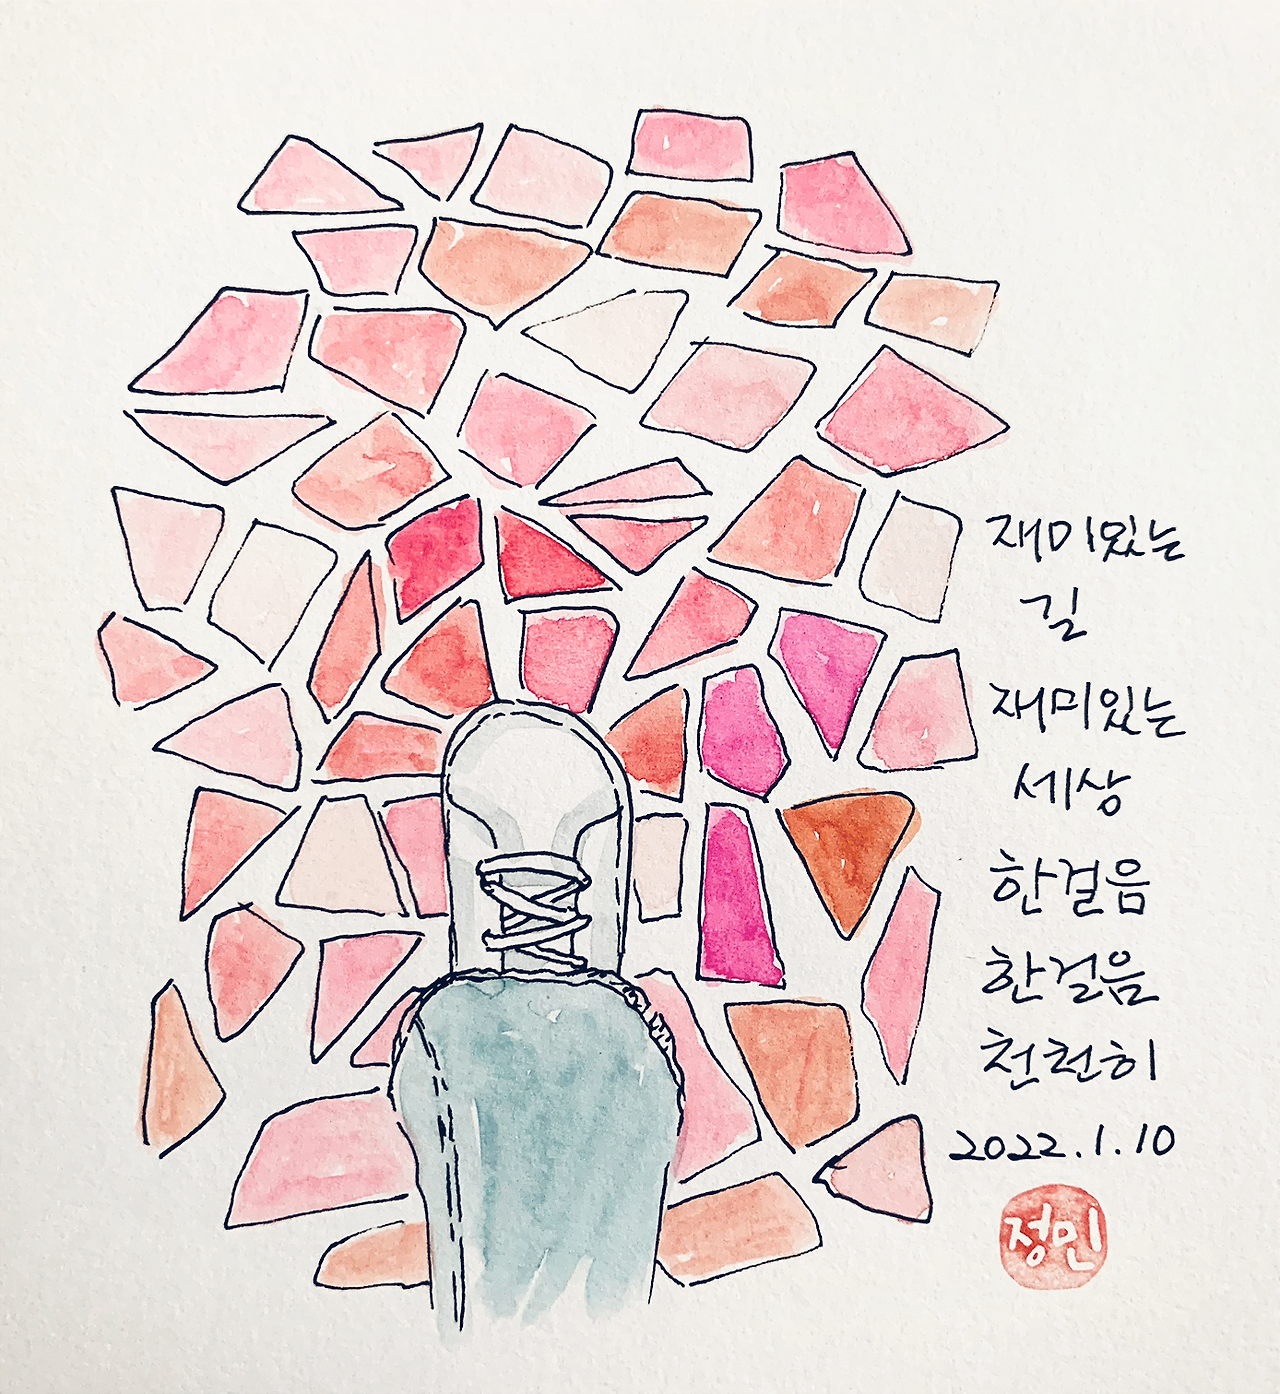 재미있는
길
재미있는
세상
한걸음
한걸음
천천히
2022.1.10
정민